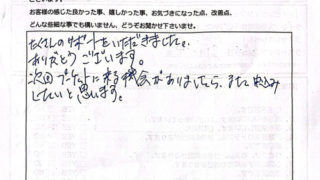 お客様の感じた良かった事、嬉しかった事、お気づきになった点、改善点、
どんな些細な事でも構いません、どうぞお聞かせ下さいませ。
たくさんのサポートをいただきました。
ありがとうございます。
次回プーケットに来る機会がありましたら、また申込み
したいと思います。